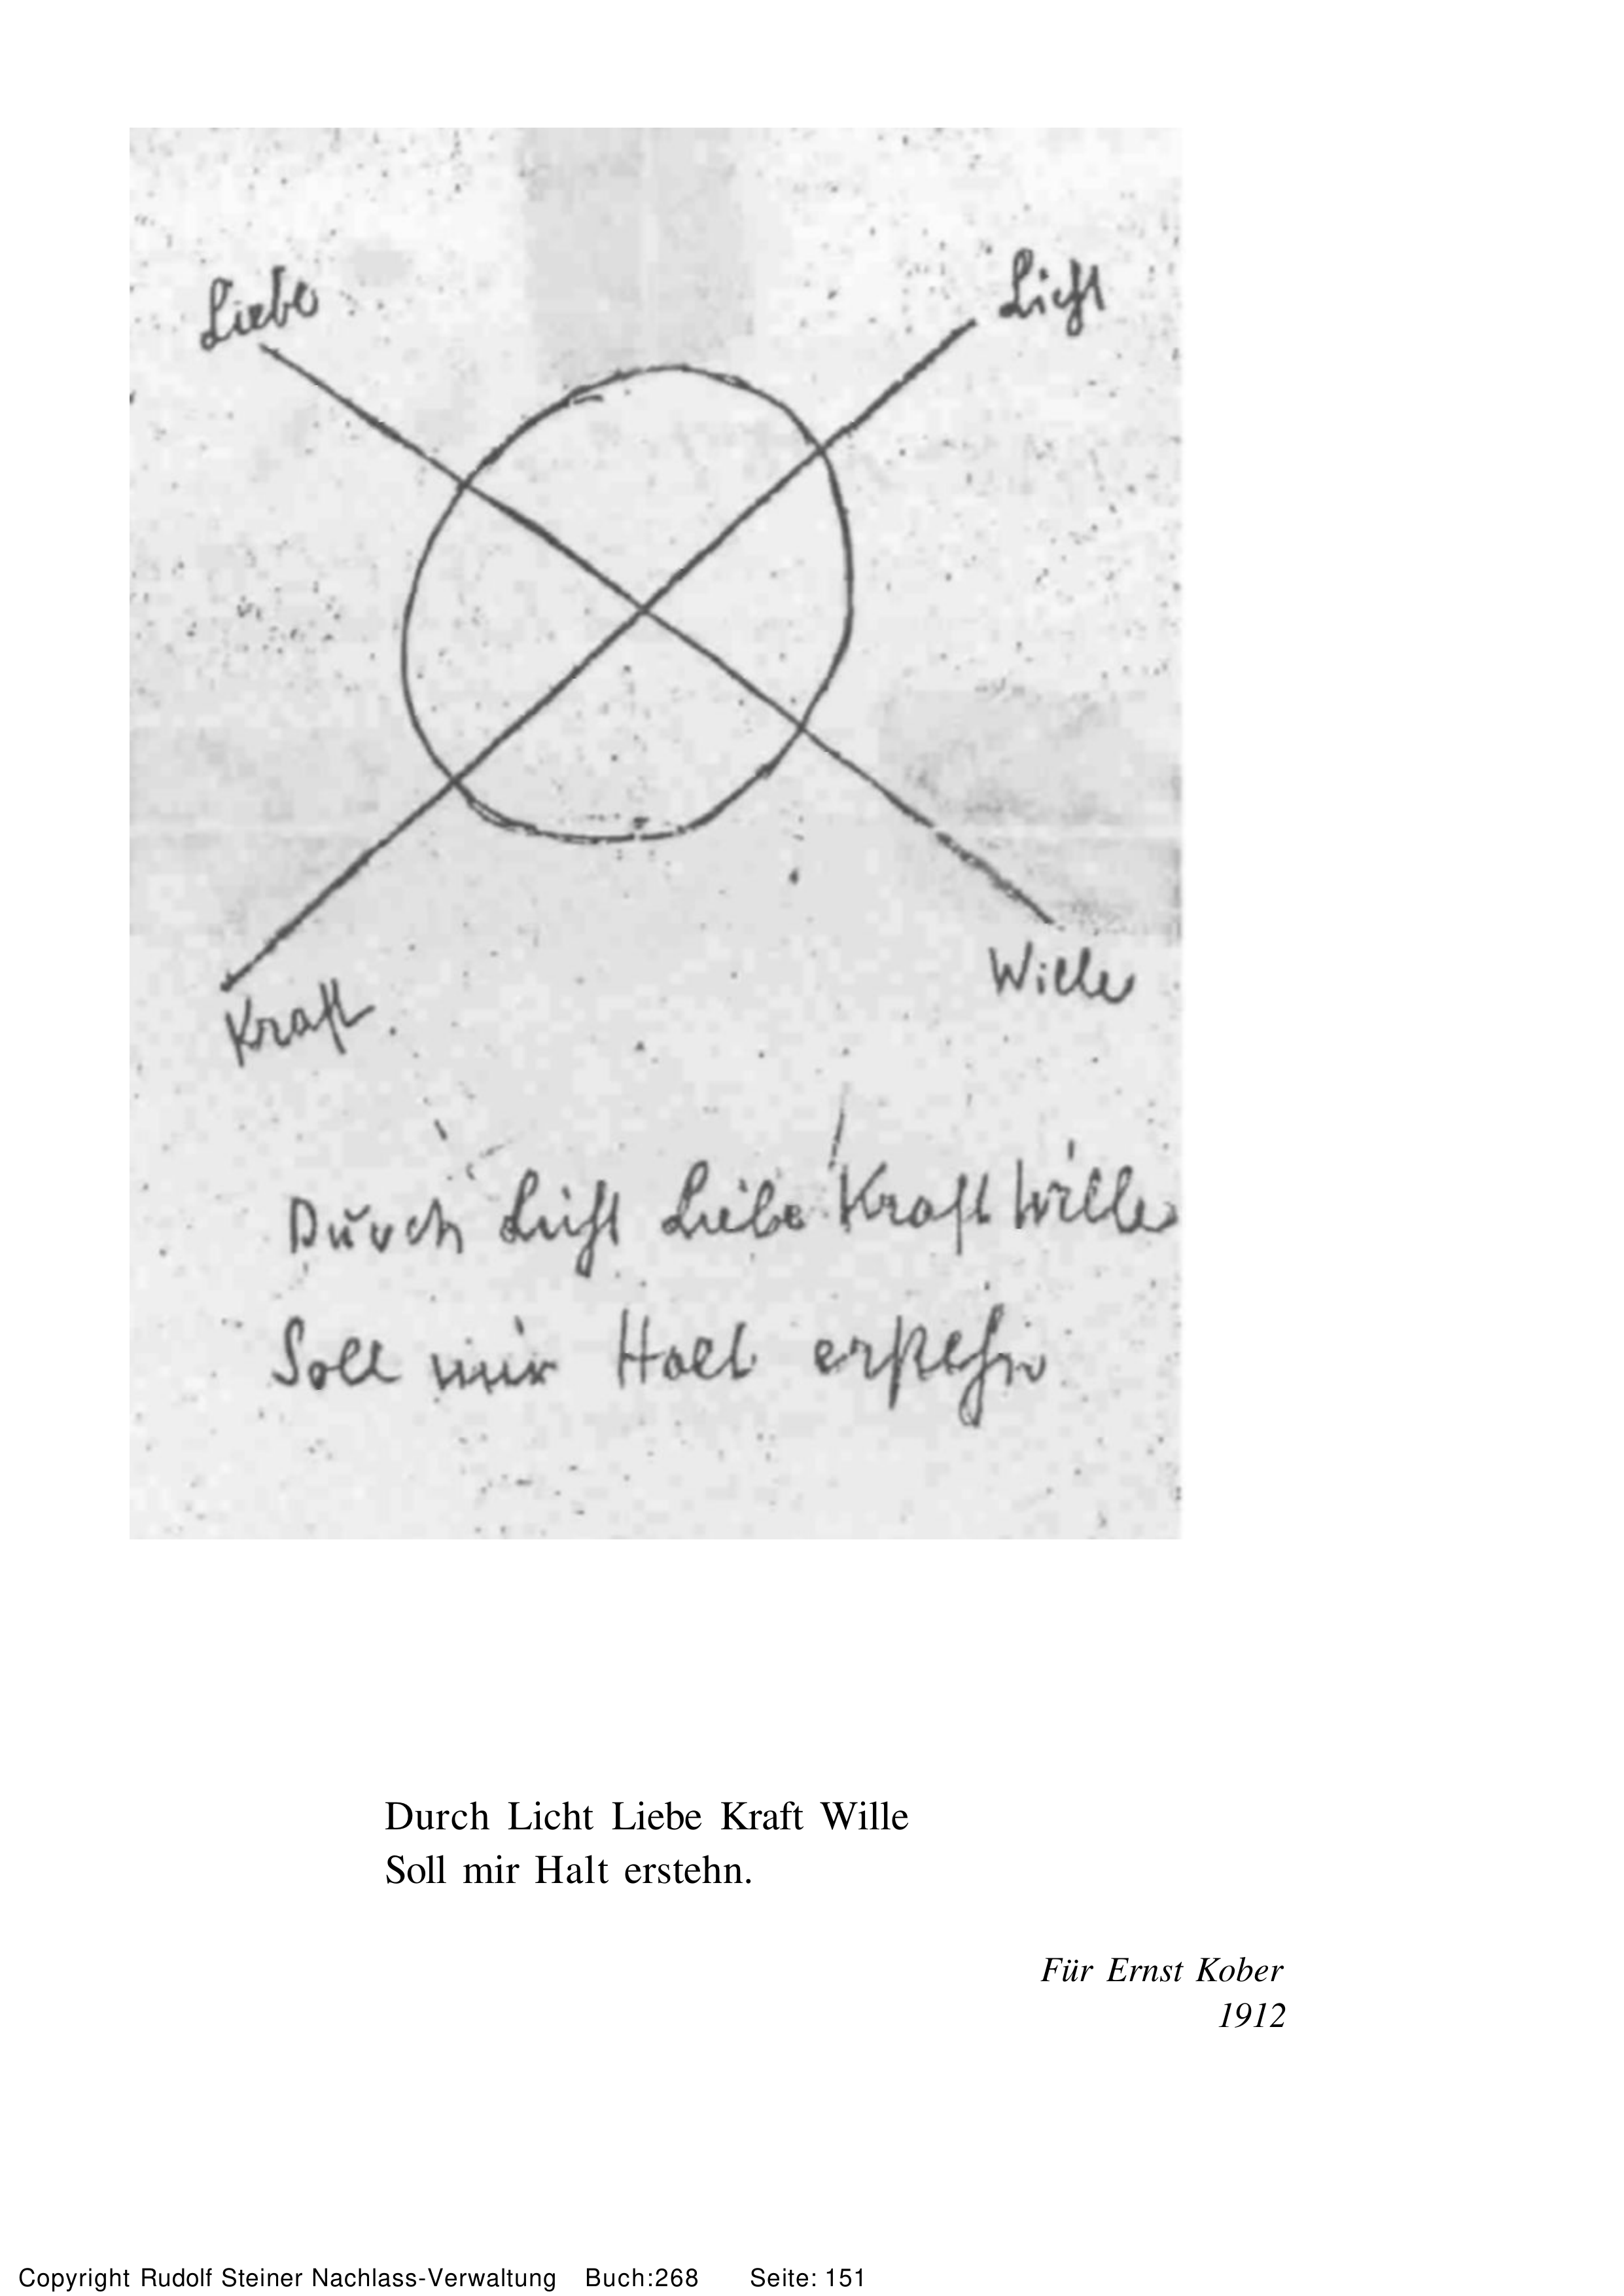 Liebe
Licht
Kraft.
Wille
Durch Licht Liebe Kraft Wille
Soll mir Halt erstehn
Durch Licht Liebe Kraft Wille
Soll mir Halt erstehn.
Für Ernst Kober
1912
Copyright Rudolf Steiner Nachlass-Verwaltung Buch:268 Seite: 151